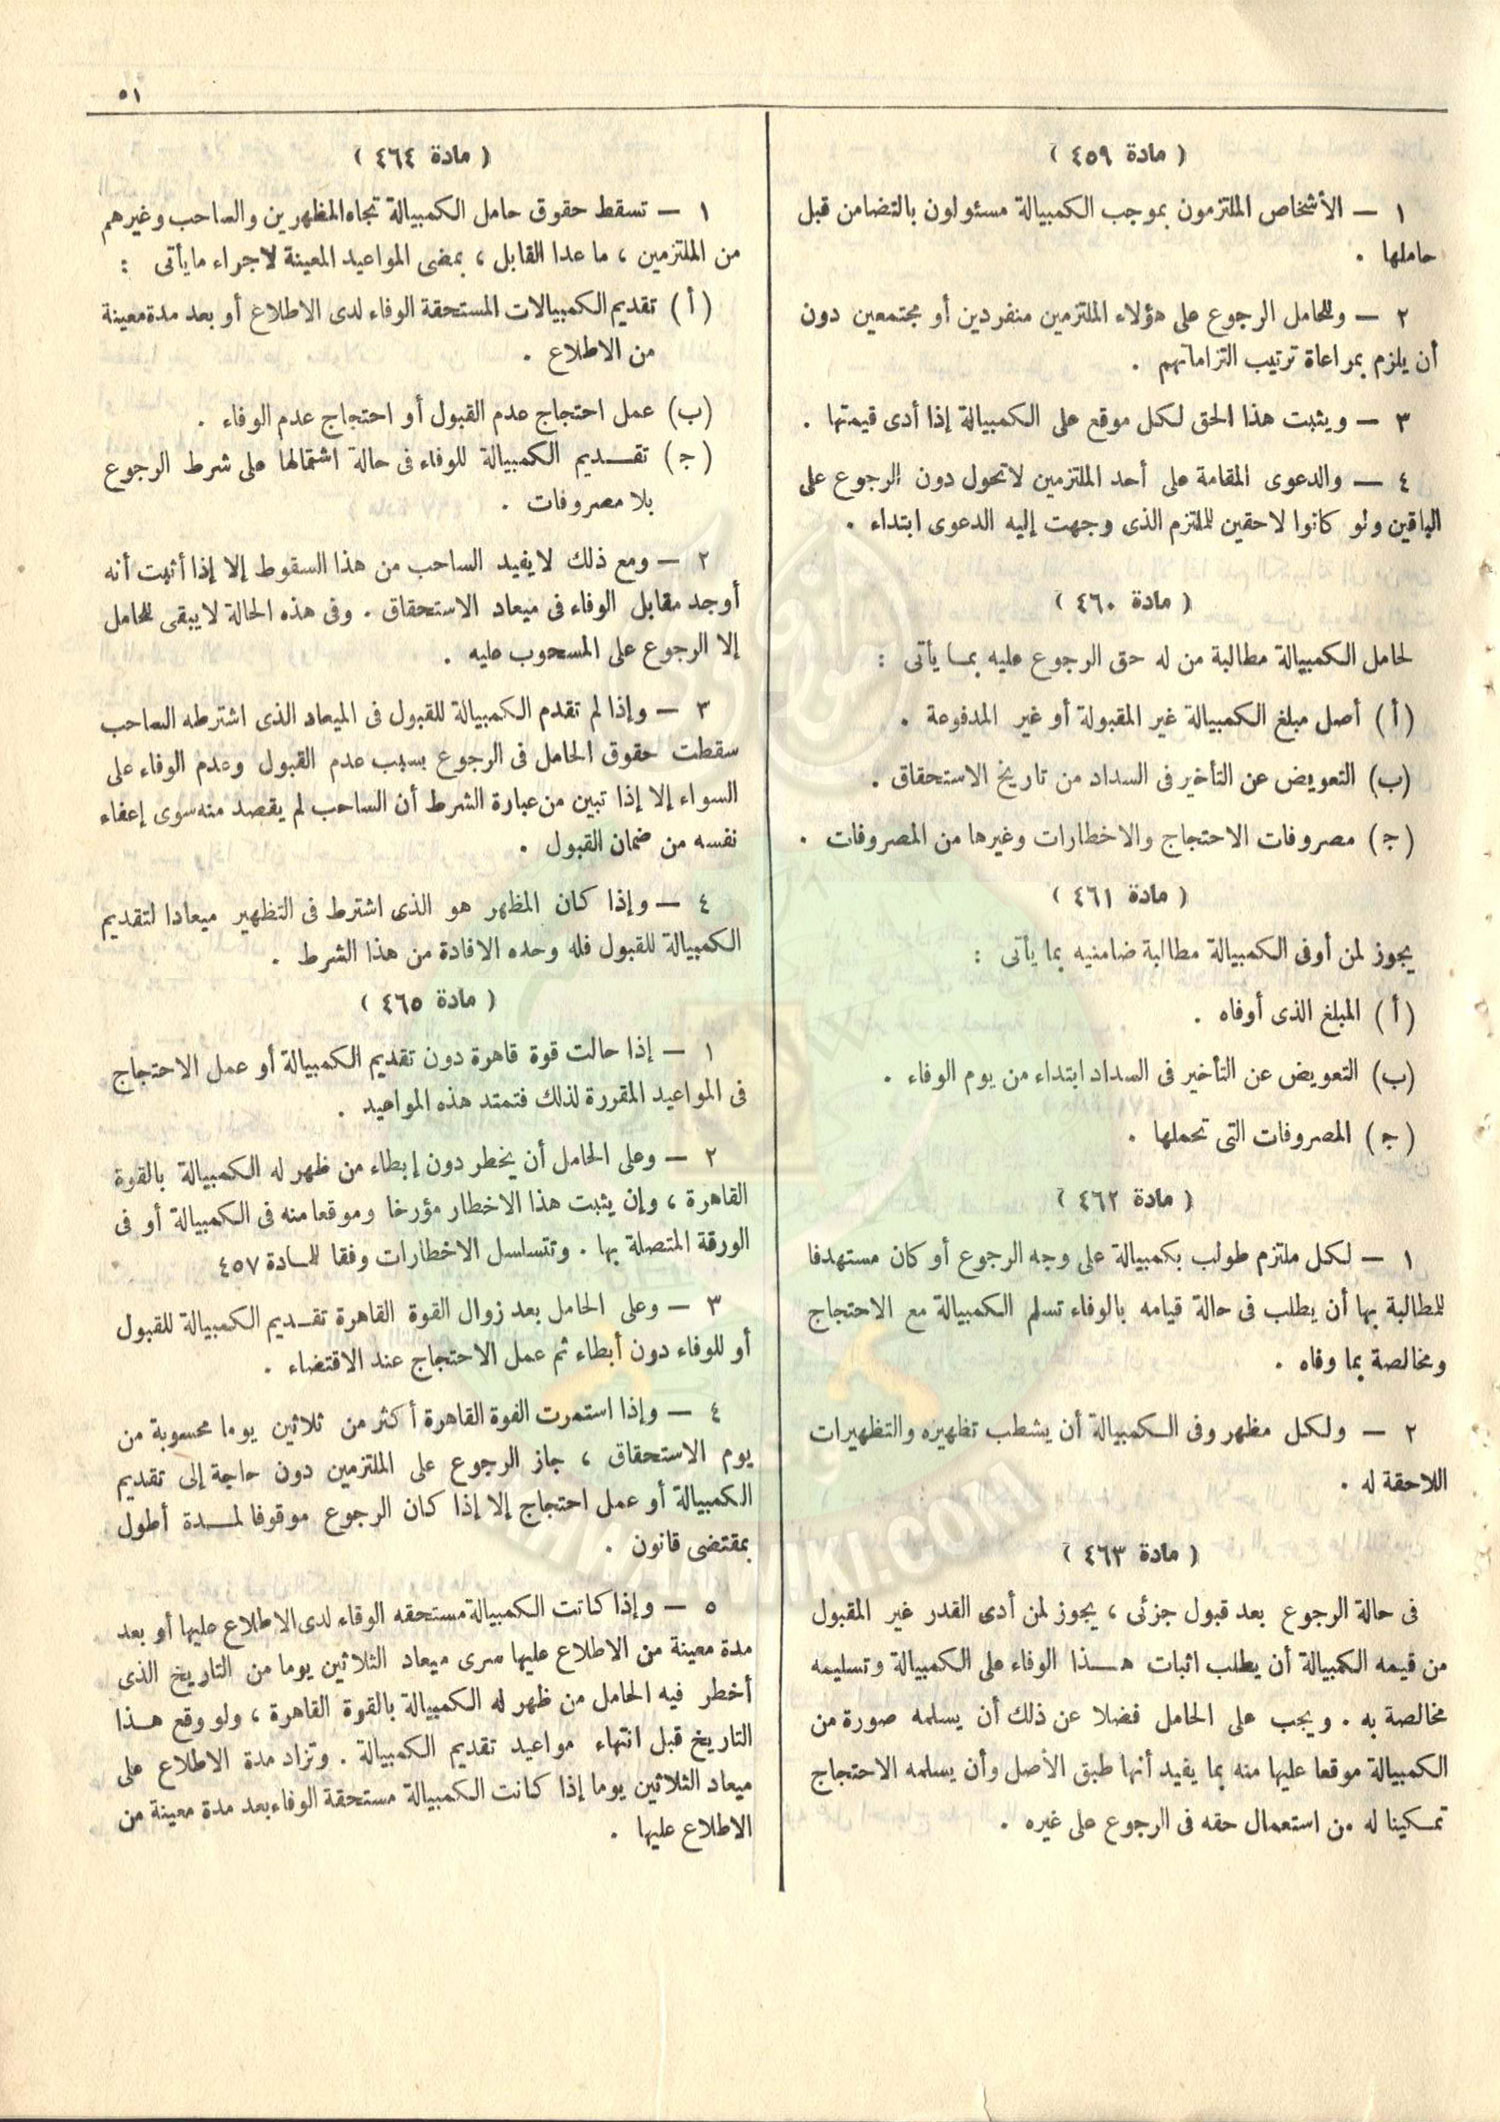 ٥١
( مادة ٤٥٩ )
١ — الأشخاص الملتزمون بموجب الكمبيالة مسئولون بالتضامن قبل
حاملها .
٢ — وللحامل الرجوع على هؤلاء الملتزمين منفردين أو مجتمعين دون
أن يلزم بمراعاة ترتيب التزاماتهم .
٣ — ويثبت هذا الحق لكل موقع على الكمبيالة إذا أدى قيمتها .
٤ — والدعوى المقامة على أحد الملتزمين لاتحول دون الرجوع على
الباقين ولو كانوا لاحقين للملتزم الذى وجهت إليه الدعوى ابتداء .
( مادة ٤٦٠ )
لحامل الكمبيالة مطالبة من له حق الرجوع عليه بما يأتى :
(أ) أصل مبلغ الكمبيالة غير المقبولة أو غير المدفوعة .
(ب) التعويض عن التأخير فى السداد من تاريخ الاستحقاق .
(ج) مصروفات الاحتجاج والاخطارات وغيرها من المصروفات .
( مادة ٤٦١ )
يجوز لمن أوفى الكمبيالة مطالبة ضامنيه بما يأتى :
(أ) المبلغ الذى أوفاه .
(ب) التعويض عن التأخير فى السداد ابتداء من يوم الوفاء .
(ج) المصروفات التى تحملها .
( مادة ٤٦٢ )
١ — لكل ملتزم طولب بكمبيالة على وجه الرجوع أو كان مستهدفا
للمطالبة بها أن يطلب فى حالة قيامه بالوفاء تسلم الكمبيالة مع الاحتجاج
ومخالصة بما وفاه .
٢ — ولكل مظهر وفى الكمبيالة أن يشطب تظهيره والتظهيرات
اللاحقة له .
( مادة ٤٦٣ )
فى حالة الرجوع بعد قبول جزئى ، يجوز لمن أدى القدر غير المقبول
من قيمه الكمبيالة أن يطلب اثبات هذا الوفاء على الكمبيالة وتسليمه
مخالصة به . ويجب على الحامل فضلا عن ذلك أن يسلمه صورة من
الكمبيالة موقعا عليها منه بما يفيد أنها طبق الأصل وأن يسلمه الاحتجاج
تمكينا له من استعمال حقه فى الرجوع على غيره .
( مادة ٤٦٤ )
١ — تسقط حقوق حامل الكمبيالة تجاه المظهرين والساحب وغيرهم
من الملتزمين ، ما عدا القابل ، بمضى المواعيد المعينة لاجراء ما يأتى :
(أ) تقديم الكمبيالات المستحقة الوفاء لدى الاطلاع أو بعد مدة معينة
من الاطلاع .
(ب) عمل احتجاج عدم القبول أو احتجاج عدم الوفاء .
(ج) تقديم الكمبيالة للوفاء فى حالة اشتمالها على شرط الرجوع
بلا مصروفات .
٢ — ومع ذلك لايفيد الساحب من هذا السقوط إلا إذا أثبت أنه
أوجد مقابل الوفاء فى ميعاد الاستحقاق . وفى هذه الحالة لايبقى للحامل
إلا الرجوع على المسحوب عليه .
٣ — وإذا لم تقدم الكمبيالة للقبول فى الميعاد الذى اشترطه الساحب
سقطت حقوق الحامل فى الرجوع بسبب عدم القبول وعدم الوفاء على
السواء إلا إذا تبين من عبارة الشرط أن الساحب لم يقصد منه سوى إعفاء
نفسه من ضمان القبول .
٤ — وإذا كان المظهر هو الذى اشترط فى التظهير ميعادا لتقديم
الكمبيالة للقبول فله وحده الافادة من هذا الشرط .
( مادة ٤٦٥ )
١ — إذا حالت قوة قاهرة دون تقديم الكمبيالة أو عمل الاحتجاج
فى المواعيد المقررة لذلك فتمتد هذه المواعيد .
٢ — وعلى الحامل أن يخطر دون إبطاء من ظهر له الكمبيالة بالقوة
القاهرة ، وإن يثبت هذا الاخطار مؤرخا وموقعا منه فى الكمبيالة أو فى
الورقة المتصلة بها . وتتسلسل الاخطارات وفقا للمادة ٤٥٧
٣ — وعلى الحامل بعد زوال القوة القاهرة تقديم الكمبيالة للقبول
أو للوفاء دون أبطاء ثم عمل الاحتجاج عند الاقتضاء .
٤ — وإذا استمرت القوة القاهرة أكثر من ثلاثين يوما محسوبة من
يوم الاستحقاق ، جاز الرجوع على الملتزمين دون حاجة إلى تقديم
الكمبيالة أو عمل احتجاج إلا إذا كان الرجوع موقوفا لمدة أطول
بمقتضى قانون .
٥ — وإذا كانت الكمبيالة مستحقه الوفاء لدى الاطلاع عليها أو بعد
مدة معينة من الاطلاع عليها سرى ميعاد الثلاثين يوما من التاريخ الذى
أخطر فيه الحامل من ظهر له الكمبيالة بالقوة القاهرة ، ولو وقع هذا
التاريخ قبل انتهاء مواعيد تقديم الكمبيالة . وتزاد مدة الاطلاع على
ميعاد الثلاثين يوما إذا كانت الكمبيالة مستحقة الوفاء بعد مدة معينة من
الاطلاع عليها .